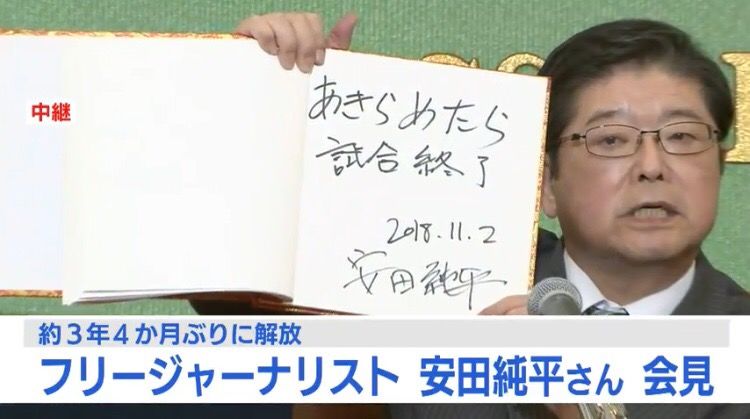 中継
あきらめたら
試合終了
2018.11.2
安田純平
約３年４か月ぶりに解放
フリージャーナリスト 安田純平さん 会見